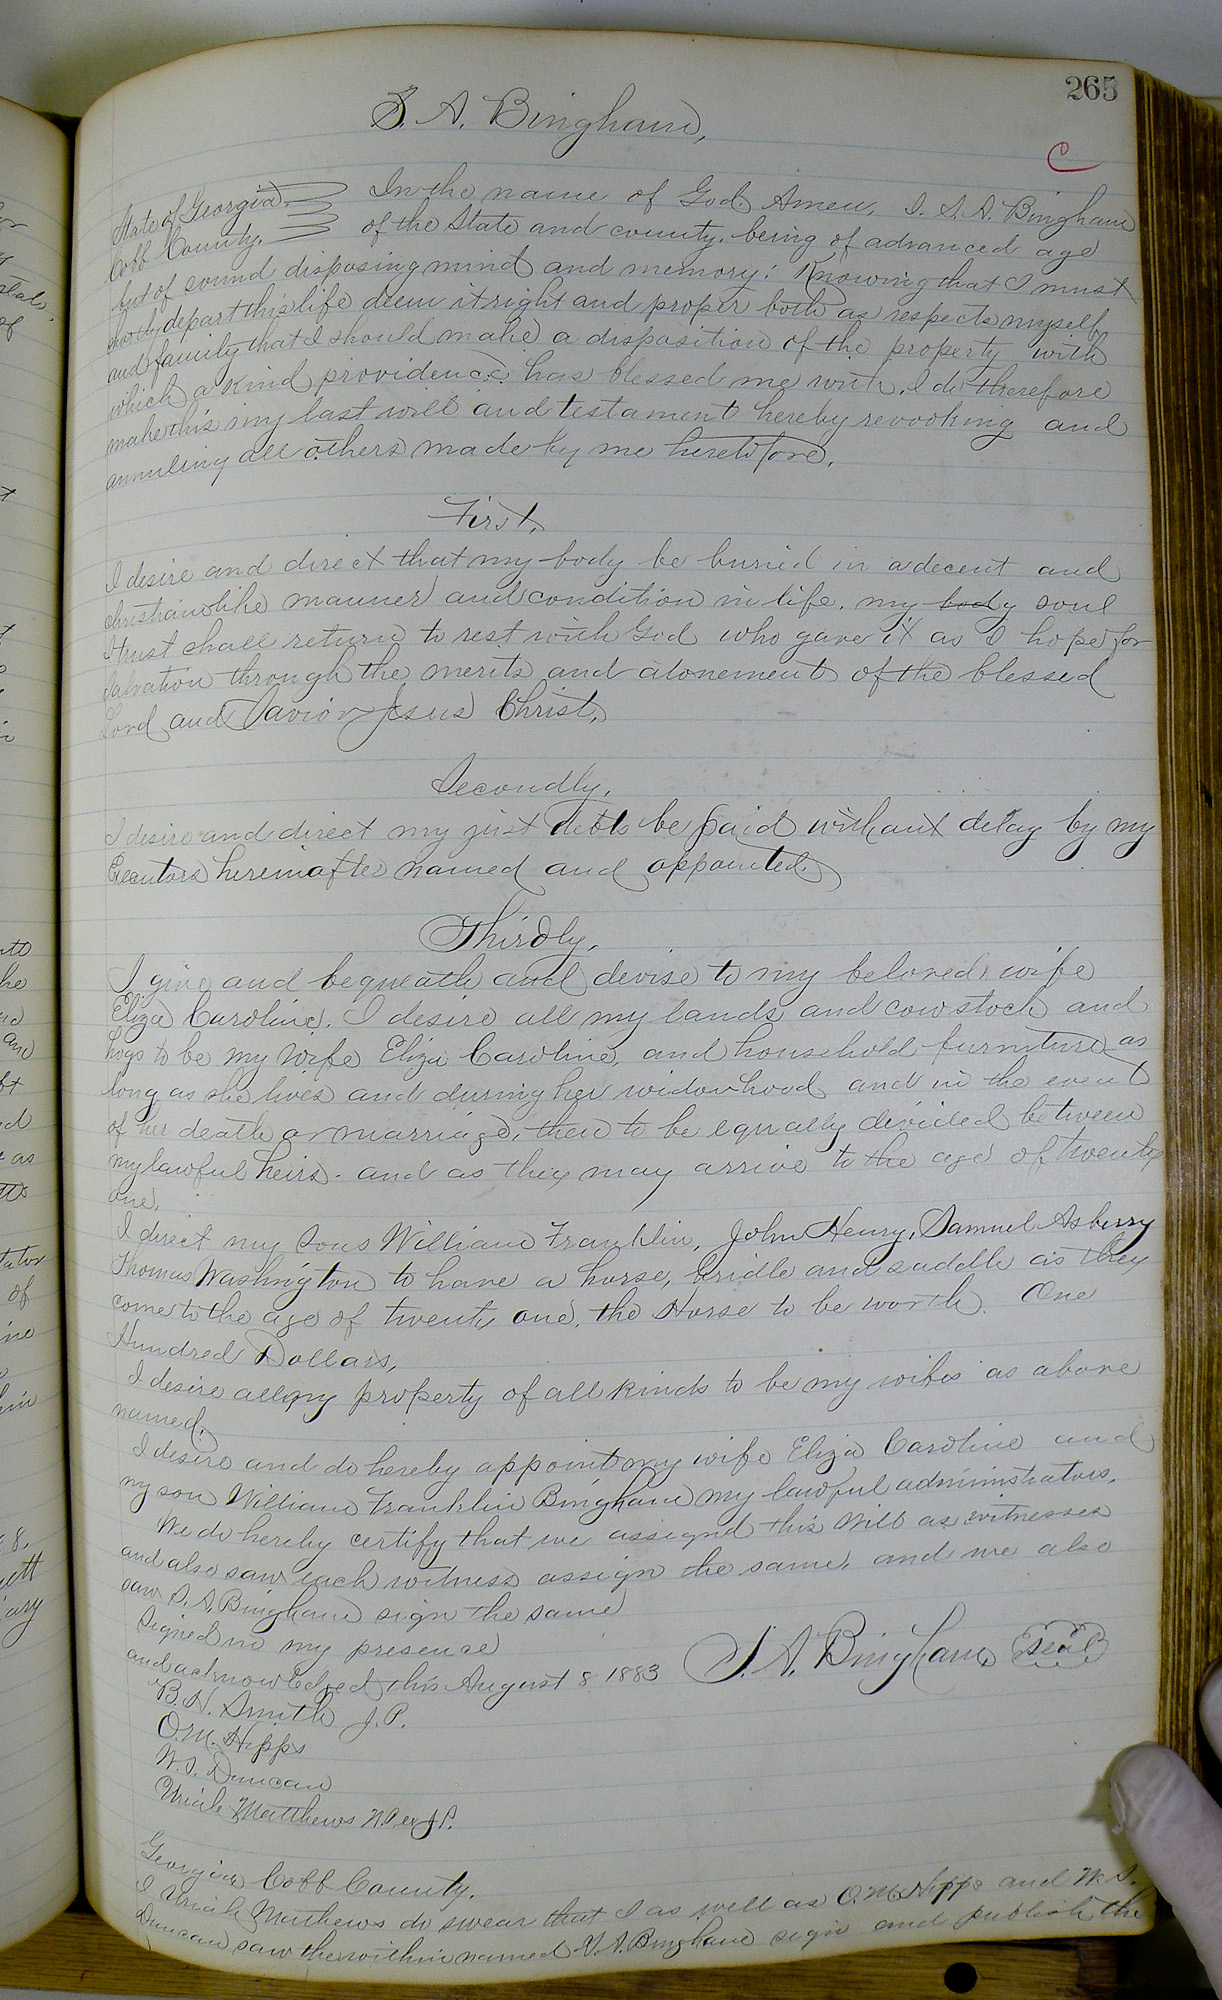 265
S. A. Bingham,
C
State of Georgia. In the name of God. Amen. I. S. A. Bingham
Cobb County. of the State and county. being of advanced age
but of sound disposing mind and memory: Knowing that I must
shortly depart this life deem it right and proper both as respects myself
and family that I should make a disposition of the property with
which a kind providence has blessed me with. I do therefore
make this my last will and testament hereby revooking and
annuling all others made by me heretofore.
First,
I desire and direct that my body be buried in a decent and
christian like manner and condition in life. my body soul
I trust shall return to rest with God who gave it as I hope for
Salvation through the merits and atonement of the blessed
Lord and Savior Jesus Christ.
Secondly,
I desire and direct my just debts be paid without delay by my
Executors hereinafter named and appointed.
Thirdly,
I give and bequeath and devise to my beloved wife
Eliza Caroline. I desire all my lands and cow stock and
hogs to be my wife Eliza Caroline, and household furniture as
long as she lives and during her widowhood and in the event
of her death or marriage, then to be equally divided between
my lawful heirs. and as they may arrive to the age of twenty
one.
I direct my sons William Franklin, John Henry, Samuel Asberry
Thomas Washington to have a horse, bridle and saddle as they
come to the age of twenty one. the Horse to be worth. One
Hundred Dollars,
I desire all my property of all kinds to be my wifes as above
named.
I desire and do hereby appoint my wife Eliza Caroline and
my son William Franklin Bingham my lawful administrators.
We do hereby certify that we assignd this Will as witnesses
and also saw each witness assign the same, and we also
saw S. A. Bingham sign the same
Signed in my presence
and acknowledged this August 8 1883 S. A. Bingham Seal
B. H. Smith J. P.
O. M. Hipps
W. S. Duncan
Uriah Matthews N. P. ex J. P.
Georgia Cobb County.
I Uriah Mathews do swear that I as well as O. M. Hipps and W. S.
Duncan saw the within named S. A. Bingham sign and publish the